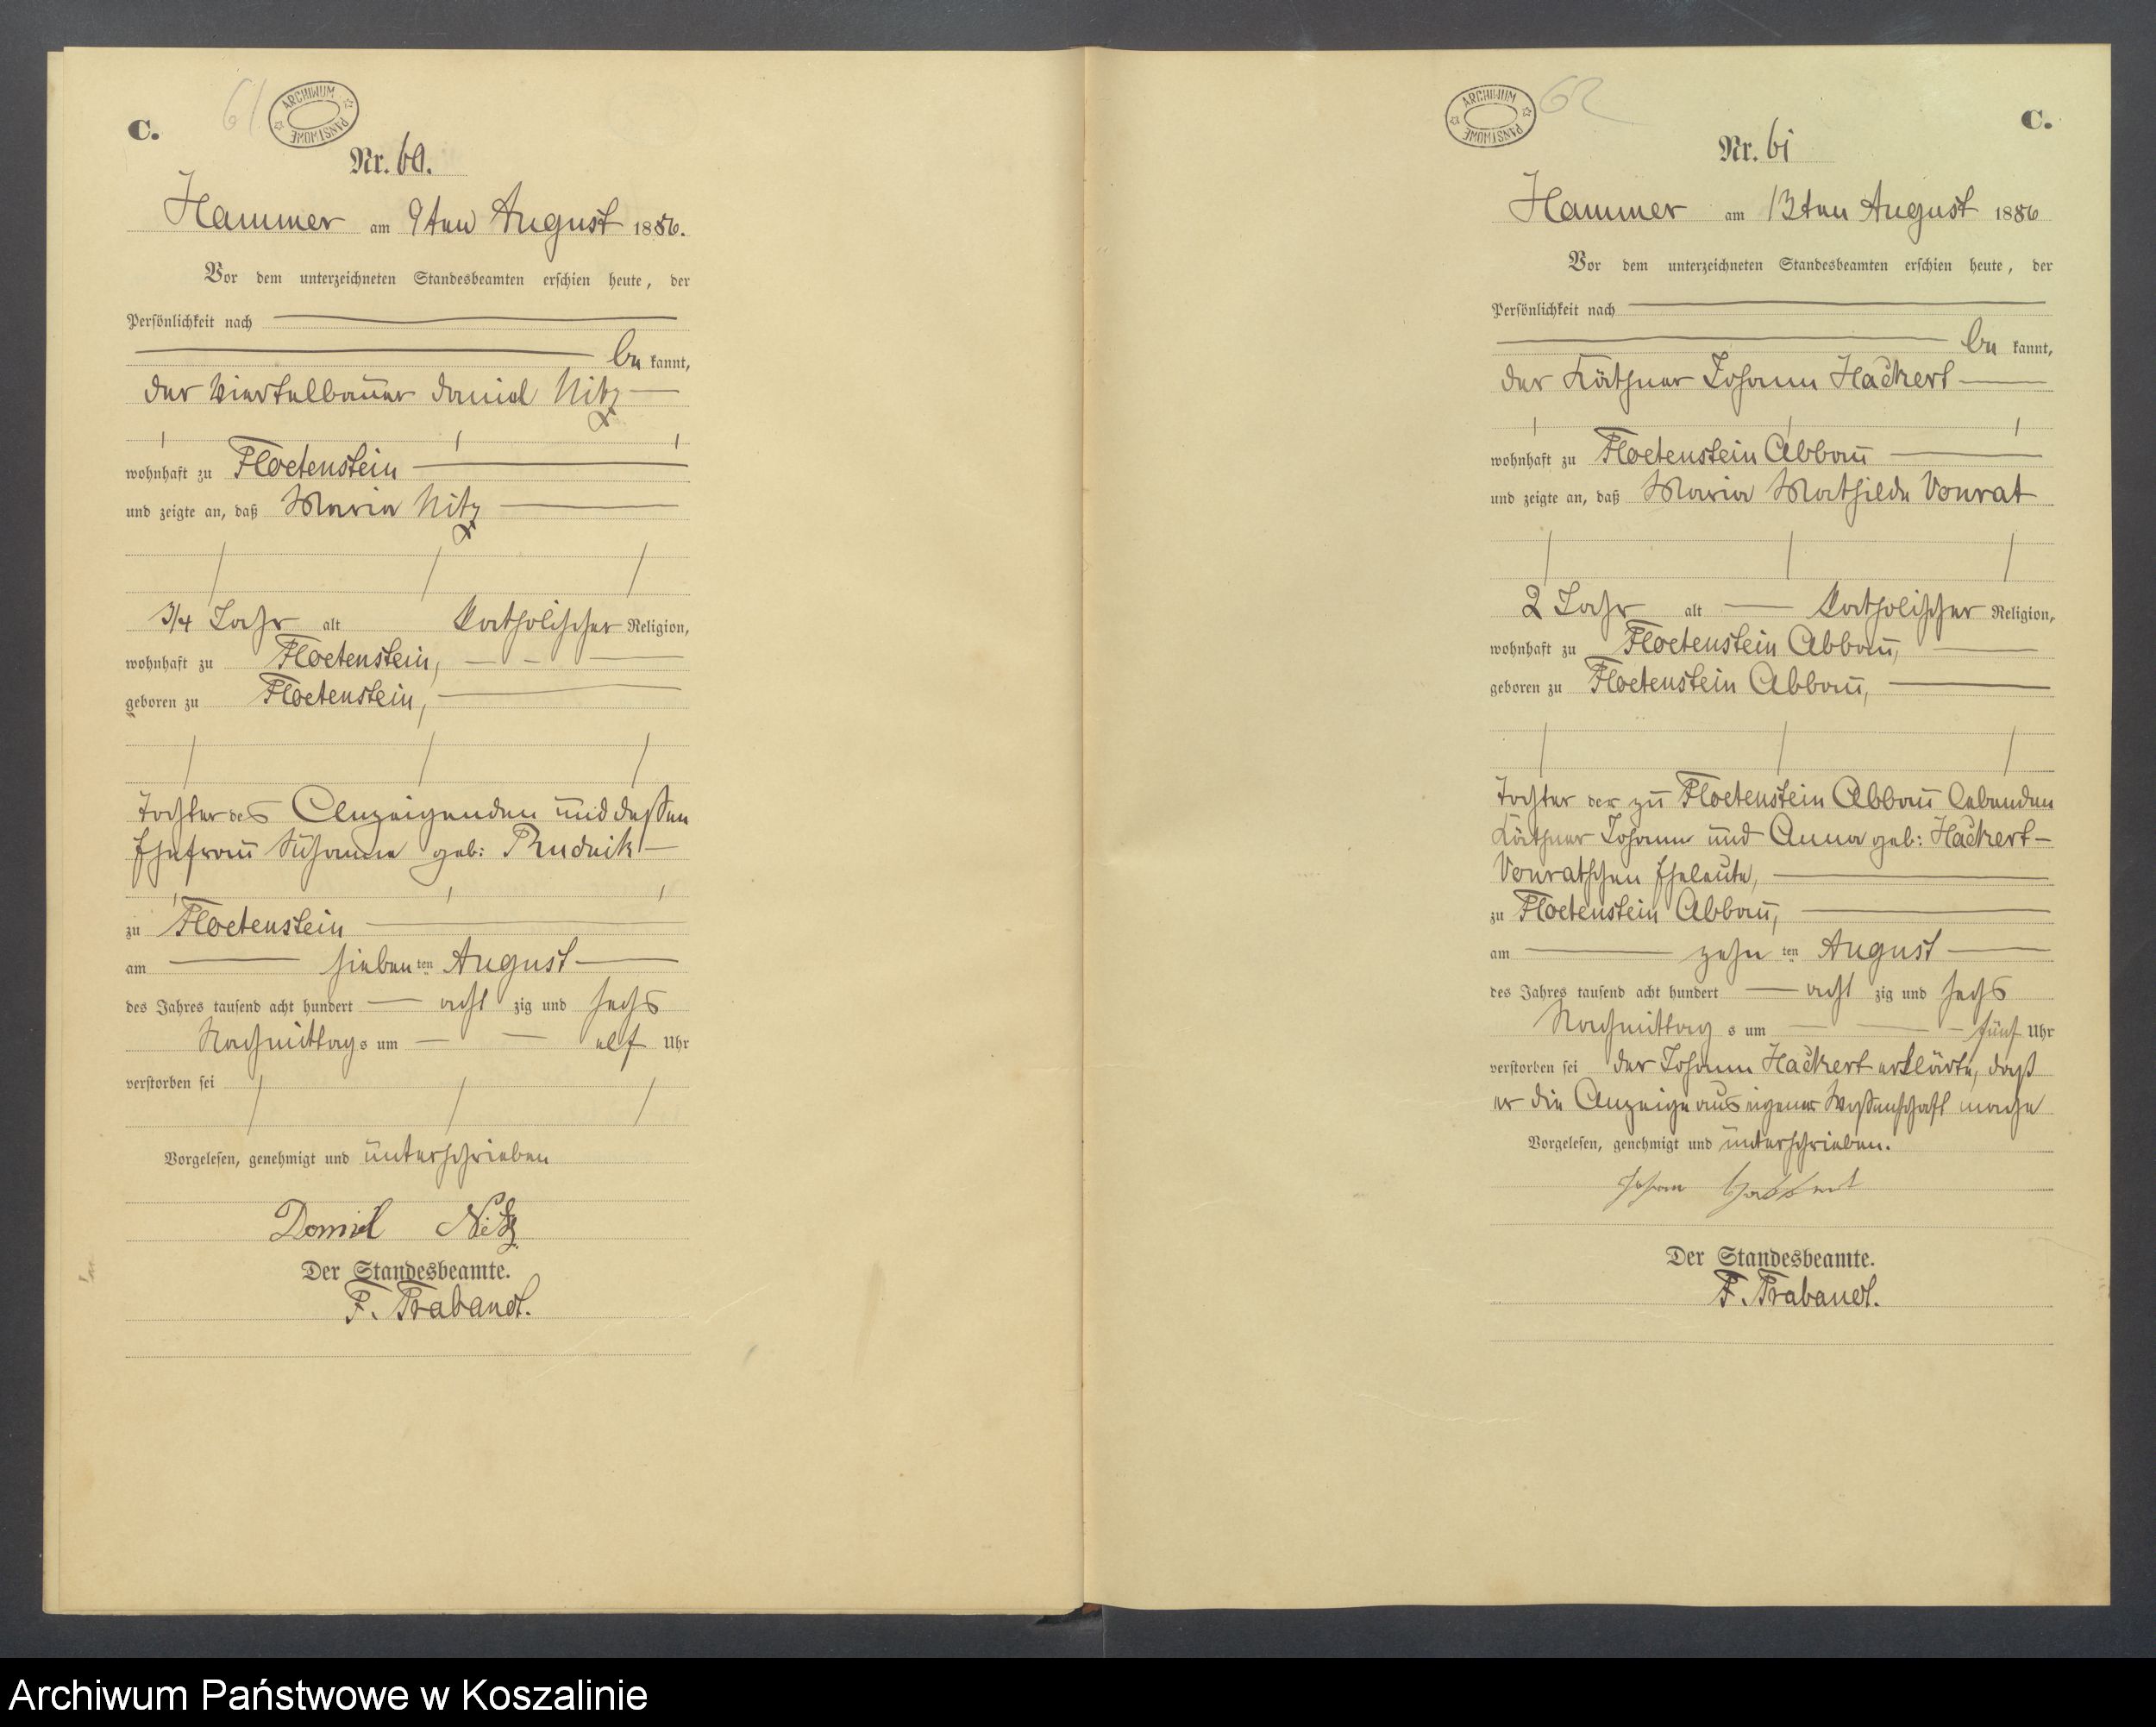 C.
61
ARCHIWUM PAŃSTWOWE
Nr. 60.
Hammer am 9ten August 1886.
Vor dem unterzeichneten Standesbeamten erschien heute, der
Persönlichkeit nach
be kannt,
der Viertelbauer Daniel Nitz
wohnhaft zu Floetenstein
und zeigte an, daß Maria Nitz
3/4 Jahr alt katholischer Religion,
wohnhaft zu Floetenstein,
geboren zu Floetenstein,
Tochter des Anzeigenden und dessen
Ehefrau Susanne geb: Prudnik
zu Floetenstein
am sieben ten August
des Jahres tausend acht hundert acht zig und sechs
Nachmittag s um elf Uhr
verstorben sei
Vorgelesen, genehmigt und unterschrieben
Daniel Nitz
Der Standesbeamte.
F. Trabandt.
ARCHIWUM PAŃSTWOWE
62
C.
Nr. 61
Hammer am 13ten August 1886
Vor dem unterzeichneten Standesbeamten erschien heute, der
Persönlichkeit nach
be kannt,
der Käthner Johann Hackert
wohnhaft zu Floetenstein Abbau
und zeigte an, daß Maria Mathilde Vonrat
2 Jahr alt katholischer Religion,
wohnhaft zu Floetenstein Abbau,
geboren zu Floetenstein Abbau,
Tochter der zu Floetenstein Abbau lebenden
Käthner Johann und Anna geb: Hackert-
Vonratschen Eheleute,
zu Floetenstein Abbau,
am zehn ten August
des Jahres tausend acht hundert acht zig und sechs
Nachmittag s um fünf Uhr
verstorben sei der Johann Hackert erklärte, daß
er die Anzeige aus eigener Wissenschaft mache
Vorgelesen, genehmigt und unterschrieben.
Johann Hackert
Der Standesbeamte.
F. Trabandt.
Archiwum Państwowe w Koszalinie